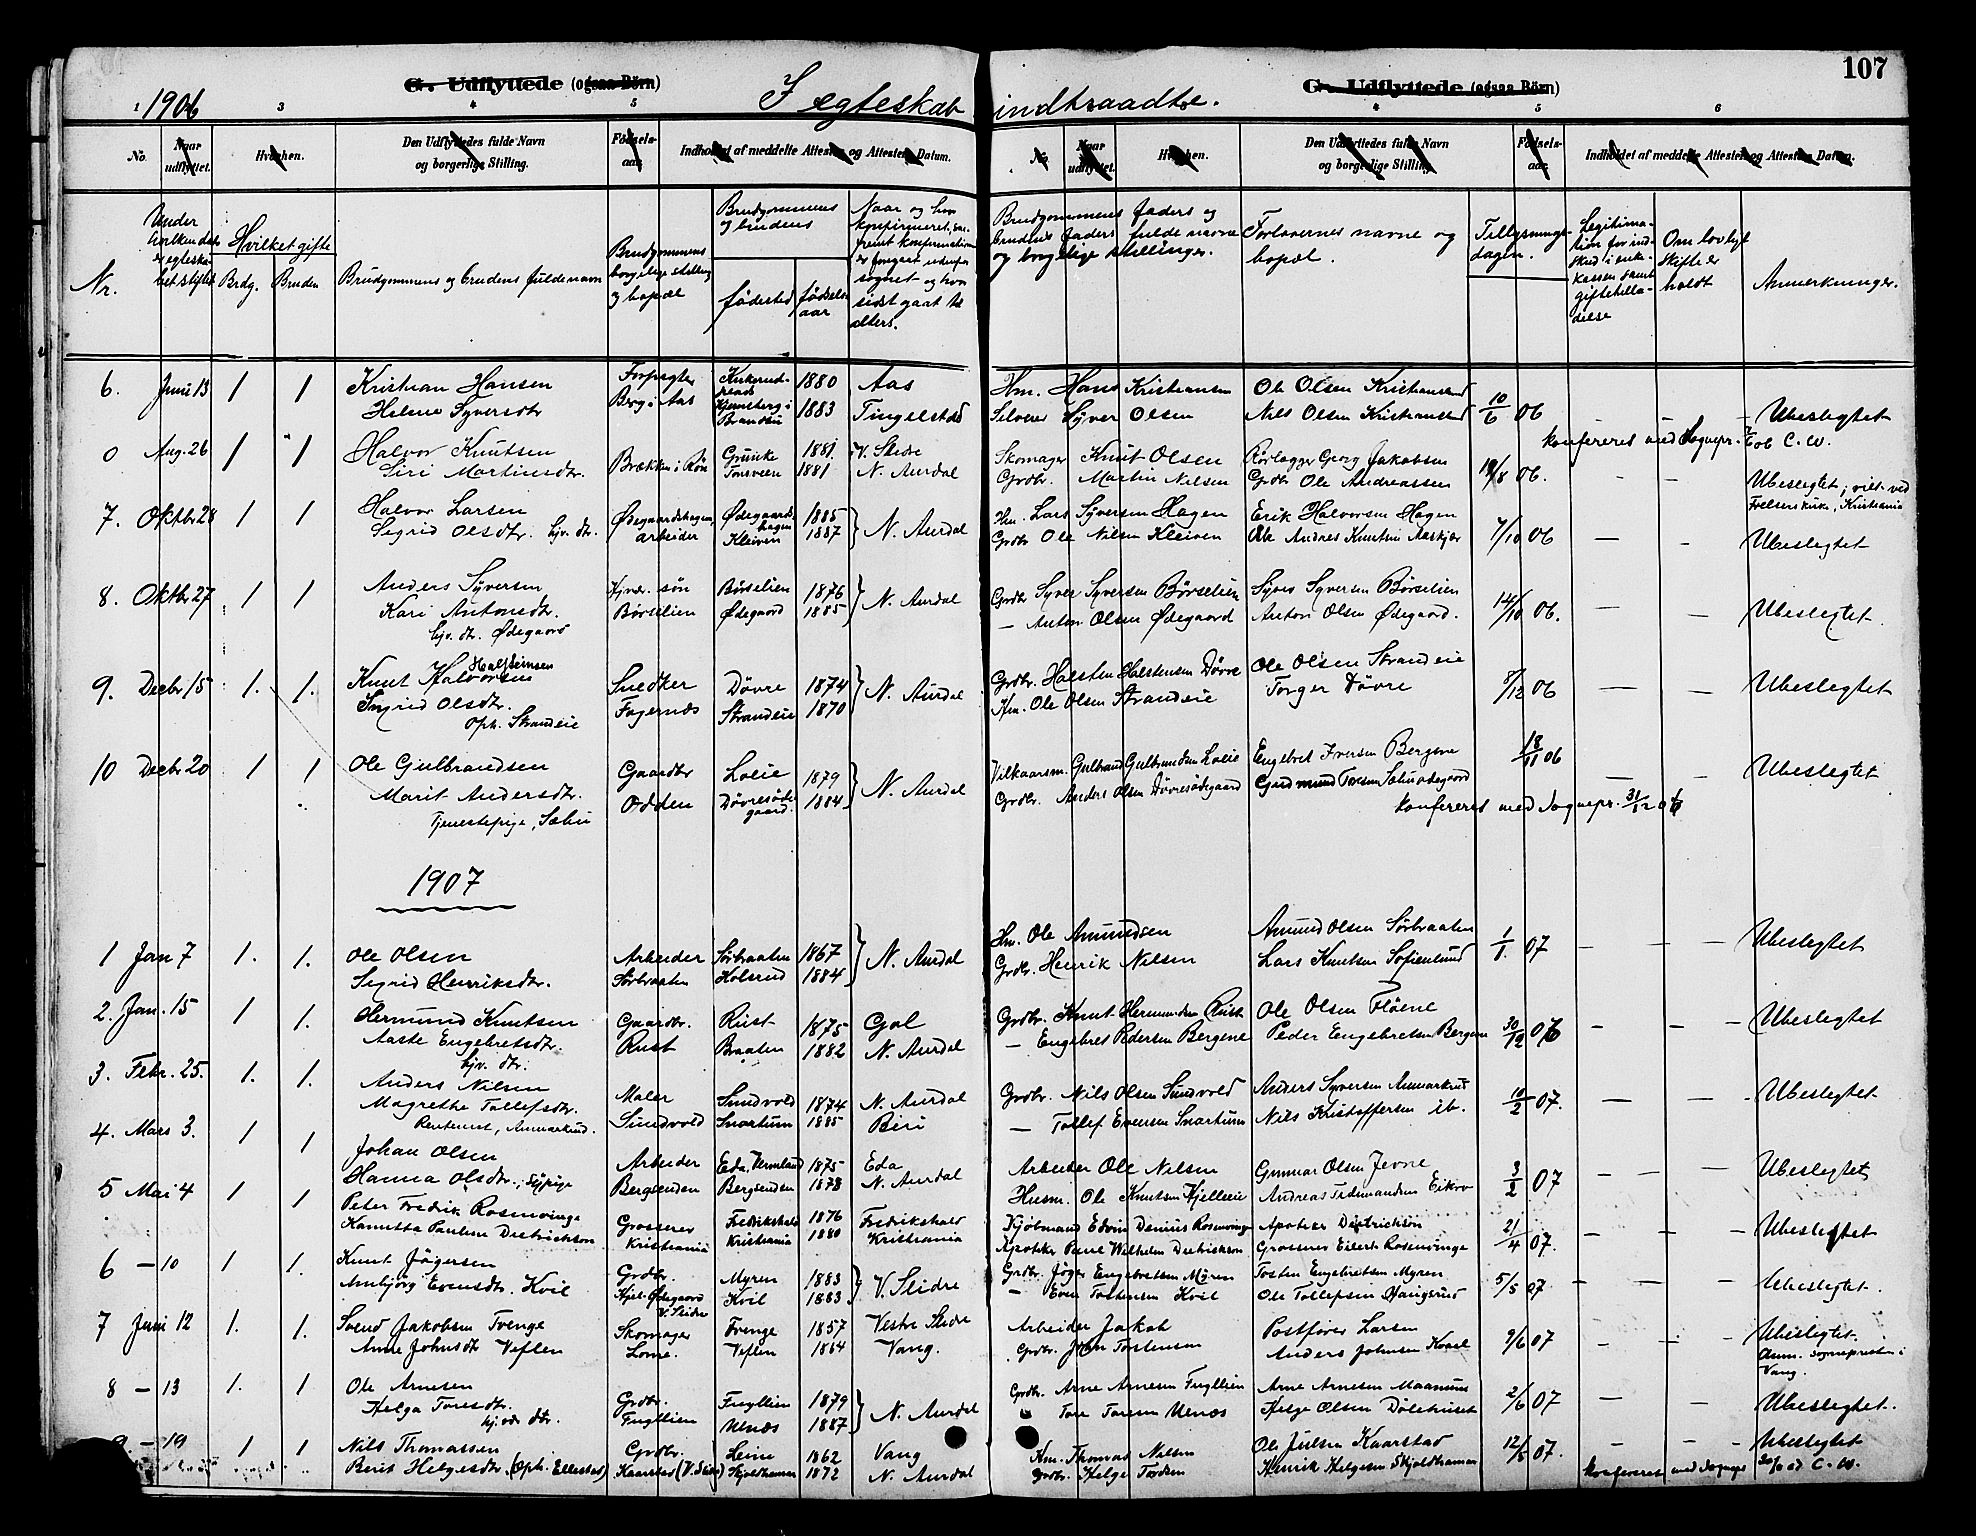 107
1906
G. Udflyttede (ogsaa Börn)
I egteskab indtraadte.
G. Udflyttede (ogsaa Börn)
1 3 4 5 4 5 6
No. Naar udflyttet. Hvorhen. Den Udflyttedes fulde Navn og borgerlige Stilling. Fødselsaar. Indholdet af meddelte Attester og Attestens Datum.
No. Naar udflyttet. Hvorhen. Den Udflyttedes fulde Navn og borgerlige Stilling. Fødselsaar. Indholdet af meddelte Attester og Attestens Datum.
Nr. Under hvilken dato egteskabet stiftet Hvilket gifte Brdg. Bruden Brudgommens og brudens fulde navn Brudgommens borgelige stilling og bopæl Brudgommens og brudens fødested fødselsaar Naar og hvor konfirmeret, saafremt konfirmation er foregaaet udenfor sognet og hvor sidst gaat til alters.
Brudgommens faders og brudens faders fulde navne og borgelige stillinger. Forlovernes navne og bopæl. Tillysningsdagen. Legitimation for indskud i enkekassen samt giftetilladelse Om lovligt skifte er holdt Anmerkninger.
6. Juni 13 1 1 Kristian Hansen Forpagter 1880 Aas Hm. Hans Kristiansen Ole Olsen Kristianslund
Helene Syversdtr Berg i Aas Brandbu 1883 Tingelstad Selveier Syver Olsen Nils Olsen Kristianslund 10/6 06 – – – Ubeslegtet
konfereret med Sognepr. C. W.
0 Aug. 26 1 1 Halvor Knutsen 1881. V. Slidre Skomager Knut Olsen Rørlægger Georg Jakobsen
Siri Martinsdtr. Brækken i Røn 1881 N. Aurdal Grdbr. Martin Nilsen Grdbr Ole Andreassen 19/8 06. – – Ubeslegtet; viet ved
Frelserskirke, Kristiania
7. Oktbr 28 1 1 Halvor Larsen Ødegaardshagen Ødegaardshagen 1885 N. Aurdal Hm. Lars Syversen Hagen Erik Halvorsen Hagen
Sigrid Olsdtr. hjv. dtr. arbeider Kleiven 1887 Grdbr Ole Nilsen Kleiven Andres Knutsen Aaskjær 7/10 06 – – Ubeslegtet
8. Oktbr 27 1 1 Anders Syversen Hjvær. søn Børselien 1876 N. Aurdal Grdbr Syver Syversen Børselien Syver Syversen Børselien
Kari Antonsdtr. Børselien Ødegaard 1885 – Anton Olsen Ødegaard Anton Olsen Ødegaard. 14/10 06. – – Ubeslegtet.
hjv. dtr. Ødegaard
Halsteinsen
9. Decbr 15 1. 1. Knut Halvorsen Snedker Døvre 1874 N. Aurdal Grdbr. Halsten Halstensen Døvre Ole Olsen Strandeie
Ingrid Olsdtr. Fagernæs Strandeie 1870 Hm. Ole Olsen Strandeie Torger Døvre 8/12 06 – – Ubeslegtet
Oph. Strandeie
10 Decbr 20 1 1 Ole Gulbrandsen Gaardbr Loeie 1879 N. Aurdal Vilkaarsm. Gulbrand Gulbrandsen Loeie Engebret Iversen Bergene 18/11 06
Marit Andersdtr. Odden Døvresødegaard. 1884 Grdbr. Anders Olsen Døvresødegaard Gudmund Toresen Sæbuødegaard – – Ubeslegtet
Tjenestepige, Sæbu konfereret med Sognepr. 31/12 06
1907
1 Jan 7 1. 1. Ole Olsen Arbeider Sørbraaten 1867 N. Aurdal Hm. Ole Amundsen Amund Olsen Sørbraaten
Sigrid Henriksdtr. Sørbraaten Holsrud 1884 Grdbr. Henrik Nilsen Lars Knutsen Sofienlund 1/1. 07 – – – Ubeslegtet
2. Jan. 15 1 1 Hermund Knutsen Gaardbr. Rust 1875 Gol Grdbr. Knut Hermundsen Rust Ole Olsen Fløene
Aaste Engebretsdtr. Rust Braaten 1882 N. Aurdal – Engebret Pedersen Bergene Peder Engebretsen Bergene 30/12 06 – – – Ubeslegtet
hjv. dtr.
3. Febr. 25. 1. 1. Anders Nilsen Maler Sundvold 1874 N. Aurdal Grdbr. Nils Olsen Sundvold Anders Syversen
Magrethe Tollefsdtr. Sundvold Snartum 1885 Biri – Tollef Evensen Snartum Nils Kristoffersen ib. 10/2 07. – – – Ubeslegtet
4. Mars 3. 1 1 Johan Olsen Arbeider Eda, Vermland 1875 Eda Arbeider Ole Nilsen Gunnar Olsen Jevne
Hanna Olsdtr., sypige Bergsenden Bergsenden 1878 N. Aurdal Husm. Ole Knutsen Kjelleie Andreas 3/2 07 – – – Ubeslegtet
5 Mai 4 1 1 Peter Fredrik Rosenvinge Grosserer Fredrikshald 1876 Fredrikshald Kjøbmand Edvin Denius Rosenvinge Apoteker Dietrichson
Kamitta Pauline Dietrichson Kristiania Kristiania 1880 Kristiania Apoteker Paul Wilhelm Dietrichson Grosserer Eilert Rosenvinge 21/4 07. – – – Ubeslegtet
6 – 10 1 1. Knut Jögersen Grdbr. Myren 1883 V. Slidre Grdbr. Jöger Engebretsen Myren Tosten Engebretsen Myren
Ambjörg Evensdtr. Kvil V. Slidre Kvil 1883 – Even Tostensen Kvil Ole Tollefsen 5/5 07 – – – Ubeslegtet.
7 Juni 12 1. 1. Svend Jakobsen Tvenge Skomager Tvenge 1857 Vestre Slidre Arbeider Jakob Postfører Larsen
Anne Johnsdtr Veflen Veflen 1864 Vang. Grdbr. John Torstensen Anders Johnsen 9/6 07 – – – Ubeslegtet.
Anm. sognepresten i Vang.
8 – 13 1. 1 Ole Arnesen Grdbr. Fugllien 1879 N. Aurdal Grdbr. Arne Arnesen Fugllien Arne Arnesen
Helga Toresdtr. Fugllien Ulnæs 1887 Tore Toresen Ulnæs Helge Olsen 2/6 07 – – Ubeslegtet.
– 19 1 1 Nils Thomassen Grdbr. Leine 1862 Vang Hm. Thomas Nilsen Ole Julsen Kaarstad 12/5 07. – – – Ubeslegtet
Berit Helgesdtr. (Oph. Ellestad) Kaarstad (V. Slidre) Skjoldhammer 1872 N. Aurdal Grdbr. Helge Tordsen Henrik Helgesen Skjoldhammer konfereret med Sognepr. C. W.